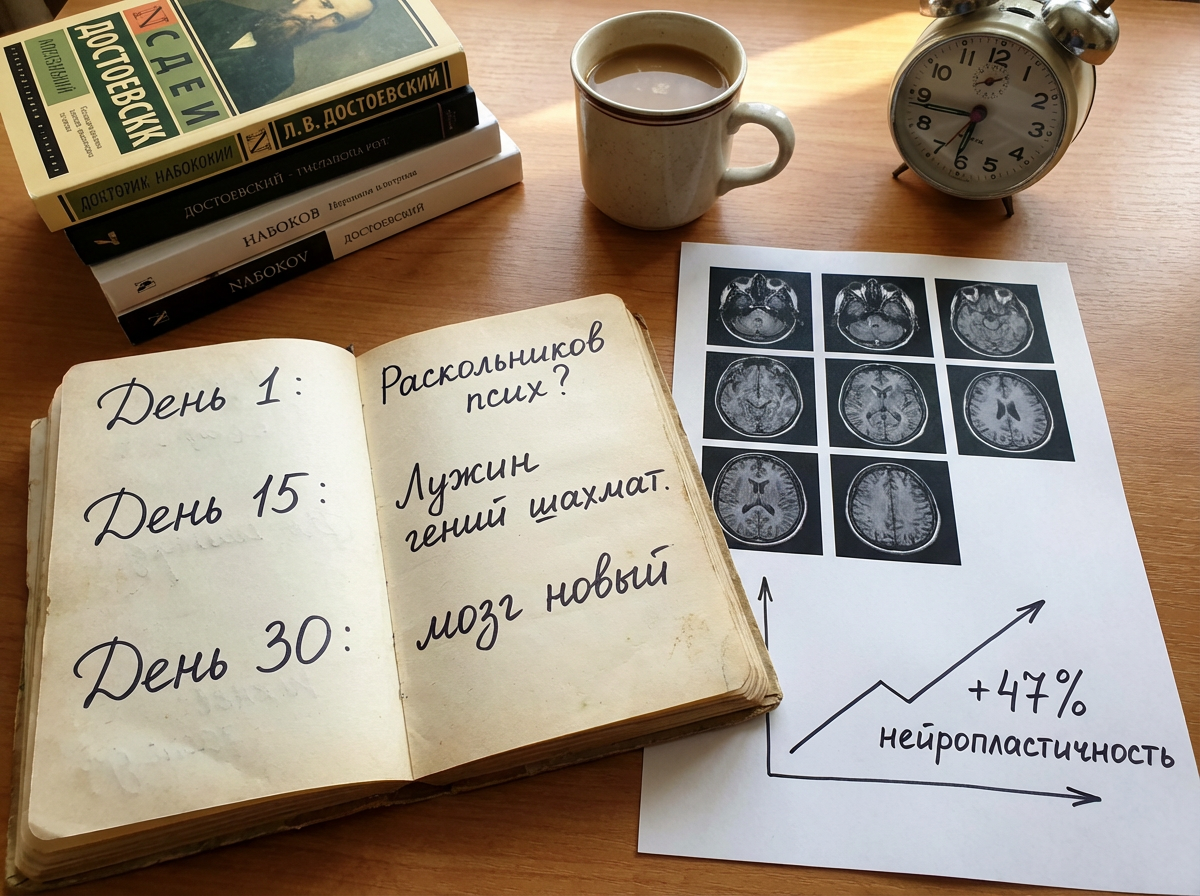 ДОСТОЕВСКК
Л. В. ДОСТОЕВСКИЙ
ДОКТОРИК, НАБОКОКИИ
N
ДОСТОЕВСКИЙ
НАБОКОВ
NАБОКОV
ДОСТОЕВСКИЙ
12
1
2
3
4
5
6
7
8
9
10
День 1:
День 15:
День 30:
Раскольников
псих?
Лужин
гений шахмат.
мозг новый
+47%
нейропластичность